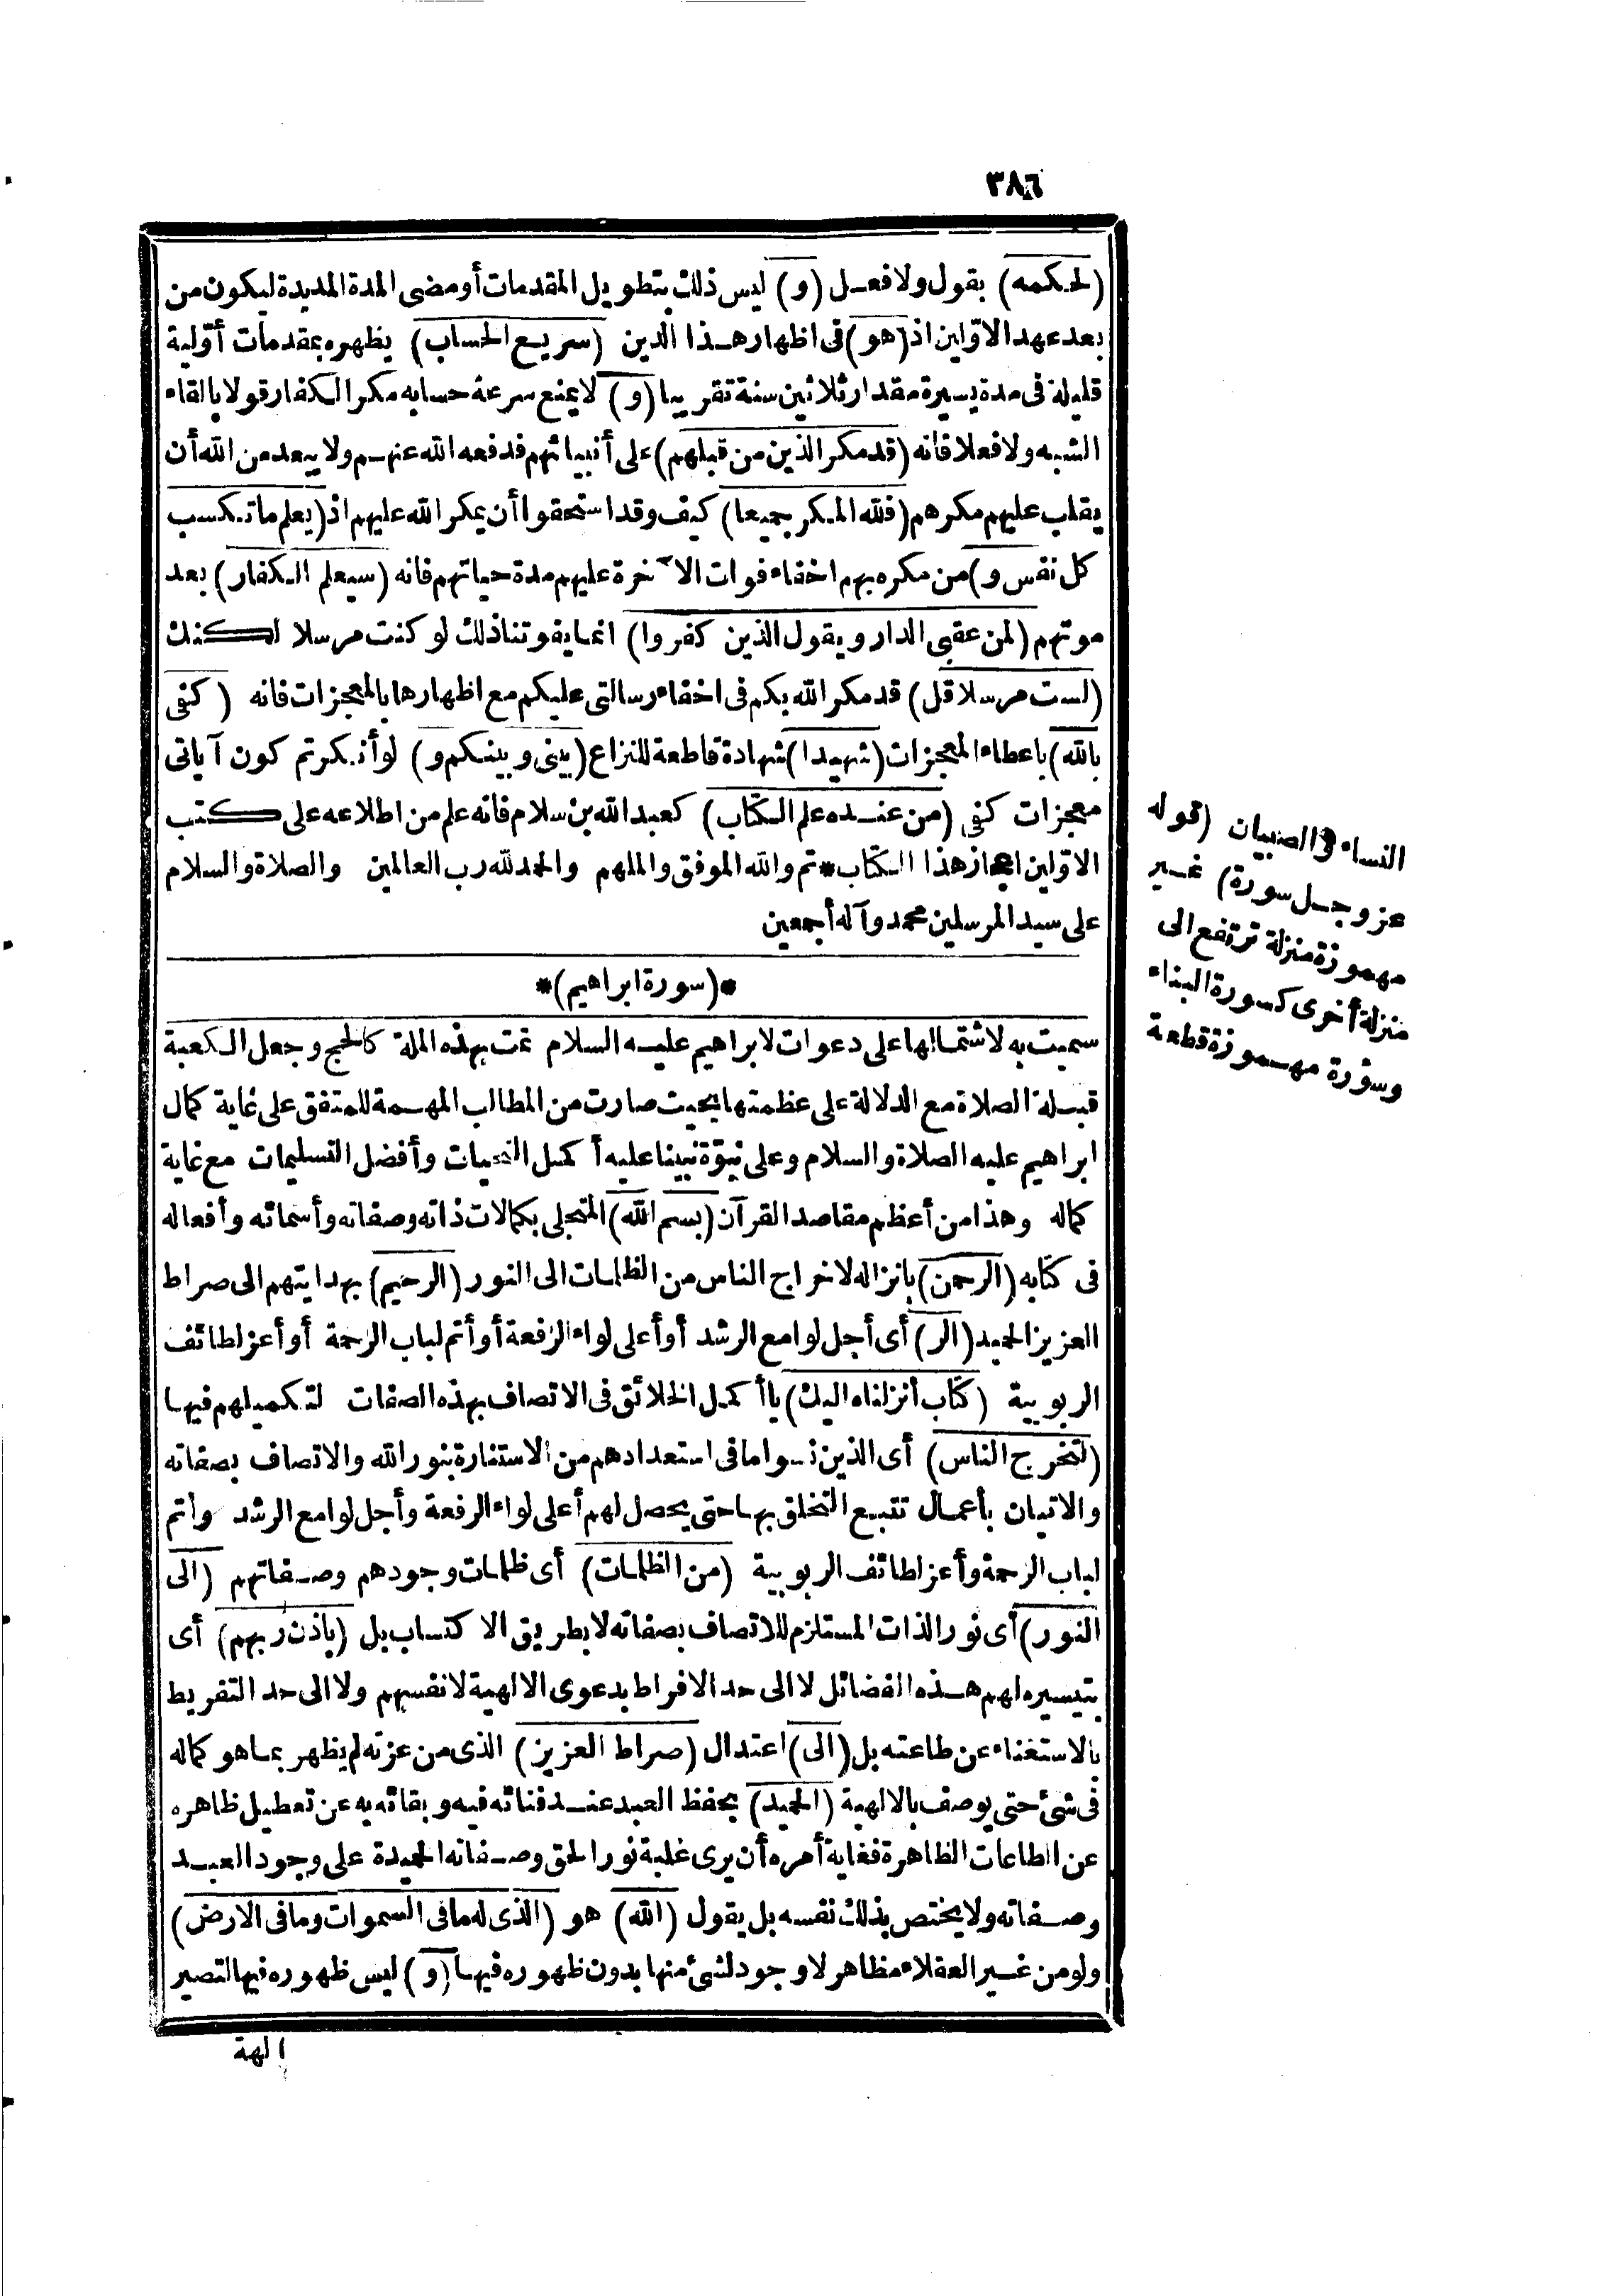 ٣٨٦
(لحكمه) بقول ولا فعل (و) ليس ذلك بتطويل المقدمات أو مضى المدة المديدة ليكون من
بعد عهد الاوّلين اذ (هو) فى اظهار هذا الدين (سريع الحساب) يظهره بمقدمات أوّلية
قليلة فى مدة يسيرة مقدار ثلاثين سنة تقريبا (و) لا يمنع سرعة حسابه مكر الكفار قولا بالقاء
الشبه ولا فعلا فانه (قد مكر الذين من قبلهم) على أنبيائهم فدفعه الله عنهم ولا يبعد من الله أن
يقلب عليهم مكرهم (فلله المكر جميعا) كيف وقد استحقوا أن يمكر الله عليهم اذ (يعلم ما تكسب
كل نفس و) من مكره بهم اخفاء فوات الا خرة عليهم مدة حياتهم فانه (سيعلم الكفار) بعد
موتهم (لمن عقبى الدار ويقول الذين كفروا) انما يفوتنا ذلك لو كنت مرسلا لكنك
(لست مرسلا قل) قد مكر الله بكم فى اخفاء رسالتى عليكم مع اظهارها بالمعجزات فانه (كفى
بالله) باعطاء المعجزات (شهيدا) شهادة قاطعة للنزاع (بينى وبينكم و) لو أنكرتم كون آياتى
معجزات كفى (من عنده علم الكتاب) كعبد الله بن سلام فانه علم من اطلاعه على كتب
الاوّلين اعجاز هذا الكتاب * تم والله الموفق والملهم والحمد لله رب العالمين والصلاة والسلام
على سيد المرسلين محمد وآله أجمعين
*(سورة ابراهيم)*
سميت به لاشتمالها على دعوات لابراهيم عليه السلام تمت بهذه الملة كالحج وجعل الكعبة
قبلة الصلاة مع الدلالة على عظمتها بحيث صارت من المطالب المهمة للمتفق على غاية كمال
ابراهيم عليه الصلاة والسلام وعلى نبوّة نبينا عليه أكمل التحيات وأفضل التسليمات مع غاية
كماله وهذا من أعظم مقاصد القرآن (بسم الله) المتجلى بكمالات ذاته وصفاته وأسمائه وأفعاله
فى كتابه (الرحمن) بانزاله لاخراج الناس من الظلمات الى النور (الرحيم) بهدايتهم الى صراط
العزيز الحميد (الر) أى أجل لوامع الرشد أو أعلى لواء الرفعة أو أتم لباب الرحمة أو أعز لطائف
الربوبية (كتاب أنزلناه اليك) يا أكمل الخلائق فى الاتصاف بهذه الصفات لتكميلهم فيها
(لتخرج الناس) أى الذين نسوا ما فى استعدادهم من الاستنارة بنور الله والاتصاف بصفاته
والاتيان بأعمال تتبع التخلق بها حتى يحصل لهم أعلى لواء الرفعة وأجل لوامع الرشد وأتم
لباب الرحمة وأعز لطائف الربوبية (من الظلمات) أى ظلمات وجودهم وصفاتهم (الى
النور) أى نور الذات المستلزم للاتصاف بصفاته لا بطريق الاكتساب بل (باذن ربهم) أى
بتيسيره لهم هذه الفضائل لا الى حد الافراط بدعوى الالهية لانفسهم ولا الى حد التفريط
بالاستغناء عن طاعته بل (الى) اعتدال (صراط العزيز) الذى من عزته لم يظهر بما هو كماله
فى شئ حتى يوصف بالالهية (الحميد) بحفظ العبد عند فنائه فيه وبقائه به عن تعطيل ظاهره
عن الطاعات الظاهرة فغاية أمره أن يرى غلبة نور الحق وصفاته الحميدة على وجود العبد
وصفاته ولا يختص بذلك نفسه بل يقول (الله) هو (الذى له ما فى السموات وما فى الارض)
ولو من غير العقلاء مظاهر لا وجود لشئ منها بدون ظهوره فيها (و) ليس ظهوره فيها لتصير
الهة
النساء والصبيان (قوله
عز وجل سورة) غير
مهموزة منزلة ترتفع الى
منزلة أخرى كسورة البناء
وسؤرة مهموزة قطعة